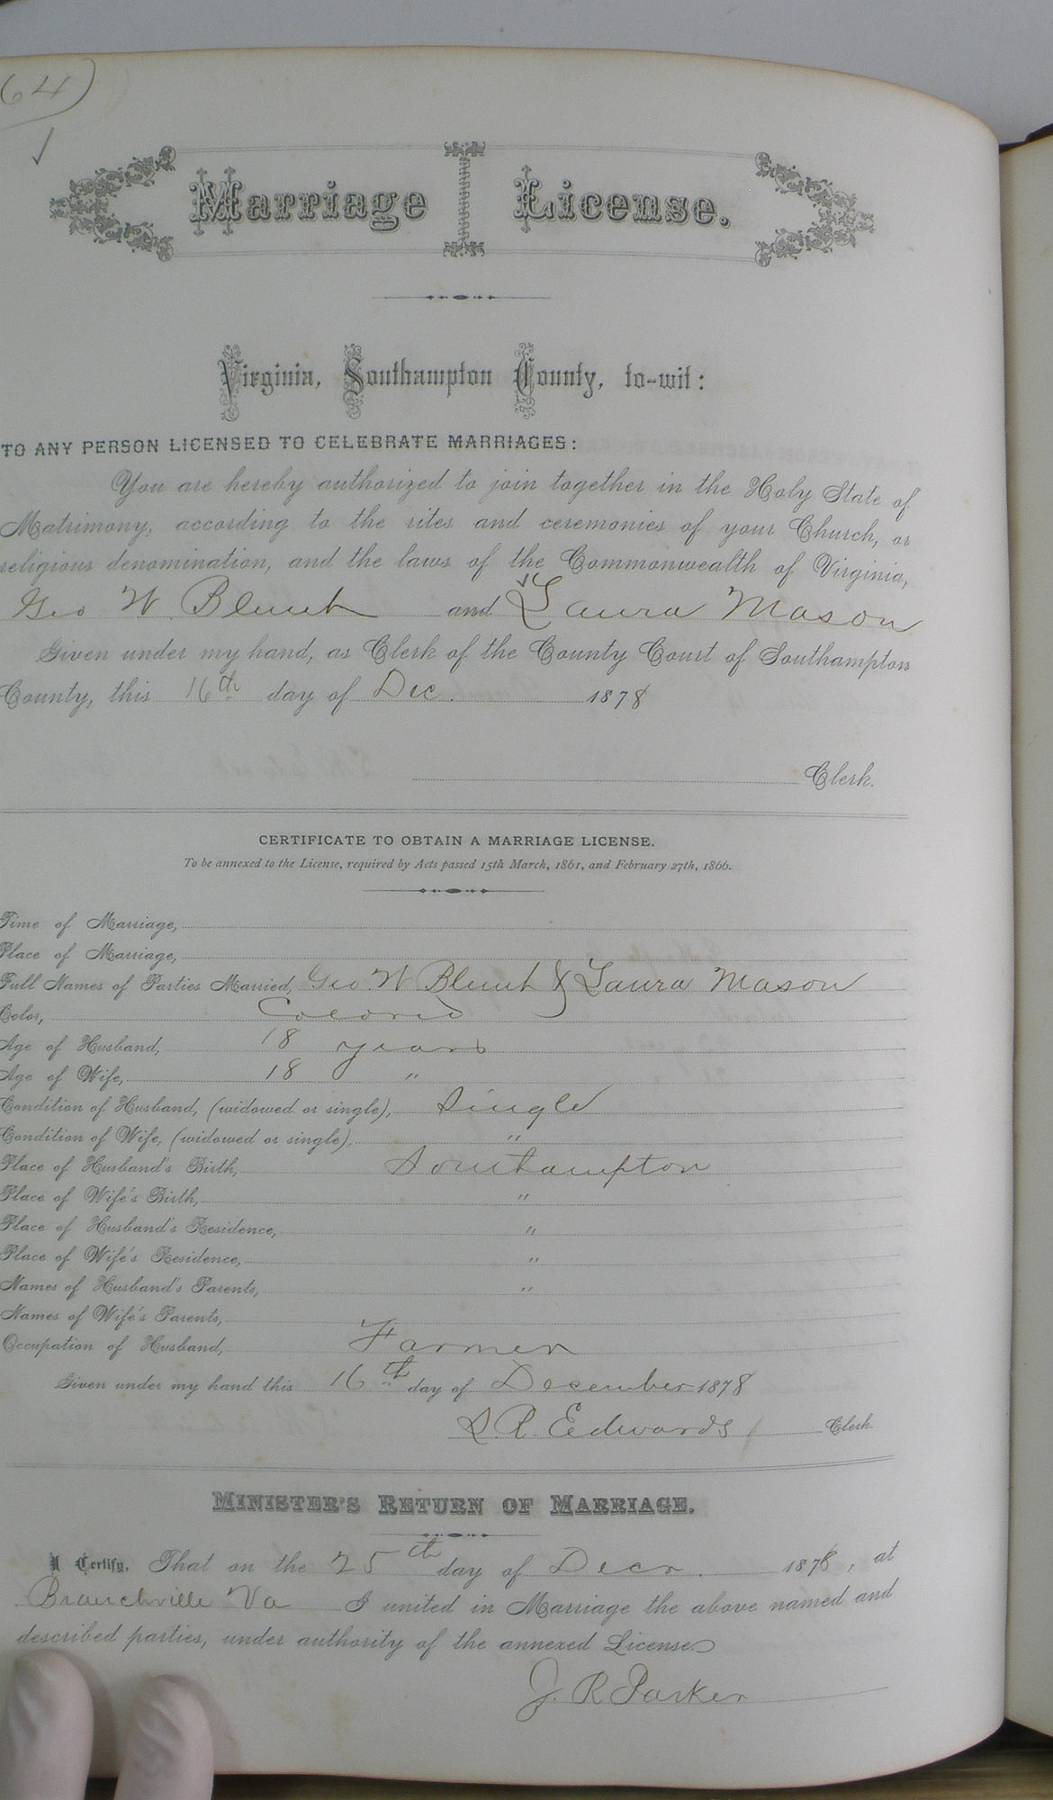 64)
Marriage License.
Virginia, Southampton County, to-wit:
TO ANY PERSON LICENSED TO CELEBRATE MARRIAGES:
You are hereby authorized to join together in the Holy State of
Matrimony, according to the rites and ceremonies of your Church, or
religious denomination, and the laws of the Commonwealth of Virginia,
Geo W. Blunt and Laura Mason
Given under my hand, as Clerk of the County Court of Southampton
County, this 16th day of Dec. 1878
Clerk.
CERTIFICATE TO OBTAIN A MARRIAGE LICENSE.
To be annexed to the License, required by Acts passed 15th March, 1861, and February 27th, 1866.
Time of Marriage,
Place of Marriage,
Full Names of Parties Married, Geo W Blunt & Laura Mason
Color, Colored
Age of Husband, 18 years
Age of Wife, 18 "
Condition of Husband, (widowed or single), Single
Condition of Wife, (widowed or single), "
Place of Husband's Birth, Southampton
Place of Wife's Birth, "
Place of Husband's Residence, "
Place of Wife's Residence, "
Names of Husband's Parents, "
Names of Wife's Parents,
Occupation of Husband, Farmer
Given under my hand this 16th day of December 1878
L. R. Edwards Clerk.
MINISTER'S RETURN OF MARRIAGE.
I Certify, That on the 25th day of Decr. 1878, at
Branchville Va I united in Marriage the above named and
described parties, under authority of the annexed License
J. R. Parker